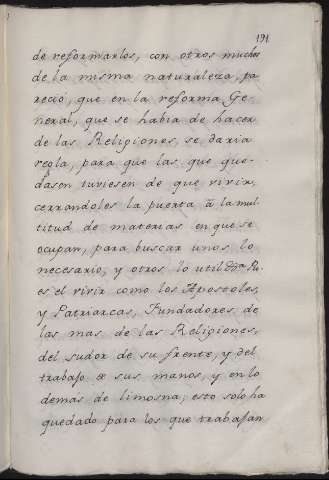 191
de reformarlos, con otros muchos
de la misma naturaleza, pa
reció, que en la reforma Ge-
neral, que se habia de hacer
de las Religiones, se daria
regla, para que las que que-
dasen tuviesen de que vivir,
cerrandoles la puerta â la mul
titud de materias en que se
ocupan, para buscar unos lo
necesario, y otros lo util
es el vivir como los Apostoles,
y Patriarcas, Fundadores de
las mas de las Religiones,
del sudor de su frente, y del
trabajo de sus manos, y en lo
demas de limosna; esto solo ha
quedado para los que trabajan